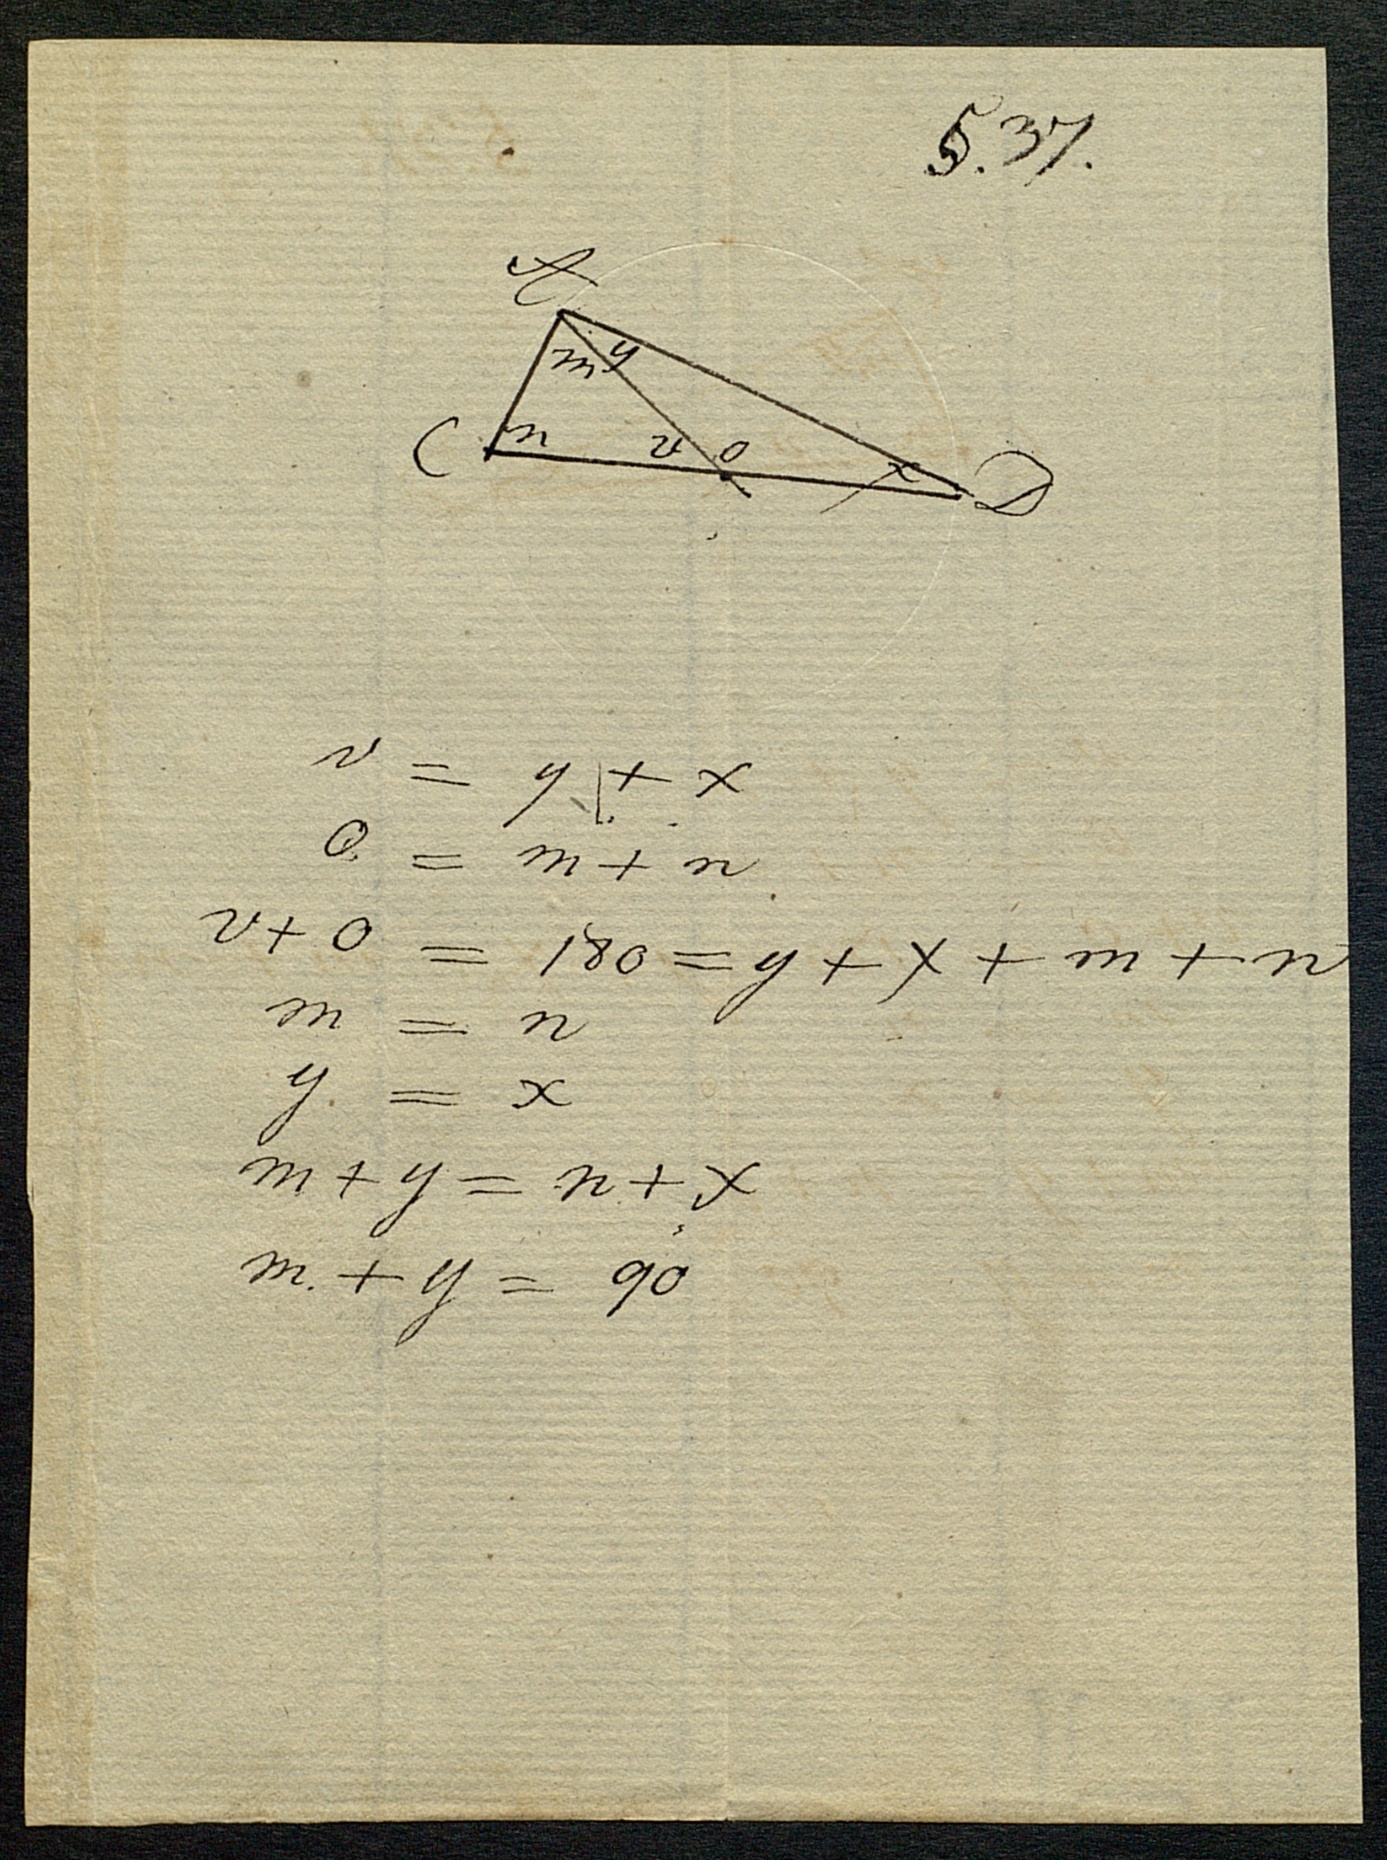 5.37.
A
m y
C n v o x D
v = y + x
o = m + n
v + o = 180 = y + x + m + n
m = n
y = x
m + y = n + x
m + y = 90